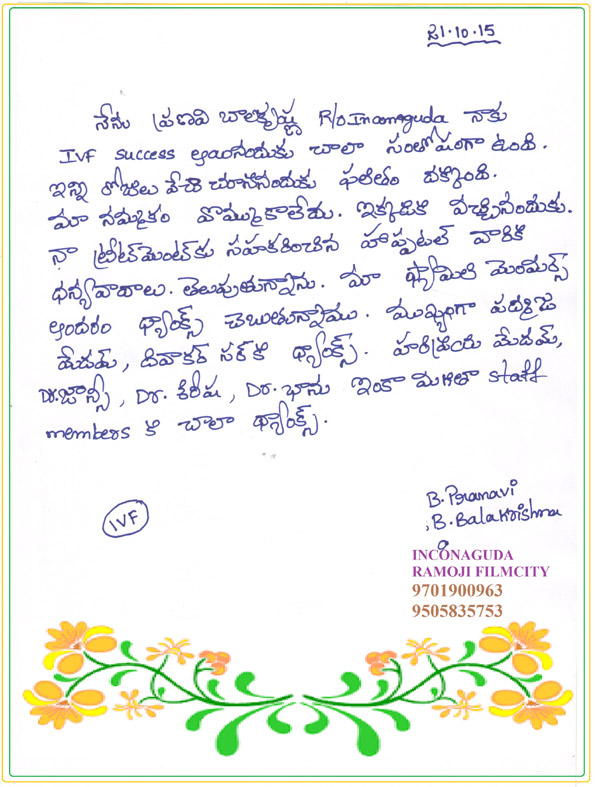 21.10.15
నేను ప్రణవి బాలకృష్ణ R/o Inamguda నాకు
IVF success అయినందుకు చాలా సంతోషంగా ఉంది.
ఇన్ని రోజులు వేచి చూసినందుకు ఫలితం దక్కింది.
మా నమ్మకం వొమ్ముకాలేదు. ఇక్కడికి వచ్చినందుకు.
నా ట్రీట్‌మెంట్‌కు సహకరించిన హాస్పటల్ వారికి
ధన్యవాదాలు. తెలుపుతున్నాను. మా ఫ్యామిలి మెంబర్స్
అందరం థ్యాంక్స్ చెబుతున్నాము. ముఖ్యంగా పద్మజ
మేడమ్, దివాకర్ సర్‌కి థ్యాంక్స్. హరిప్రియ మేడమ్,
Dr. ఝాన్సీ, Dr. శిరీష, Dr. భాను ఇంకా మిగితా staff
members కి చాలా థ్యాంక్స్.
B. Pranavi
B. Balakrishna
IVF
INCONAGUDA
RAMOJI FILMCITY
9701900963
9505835753